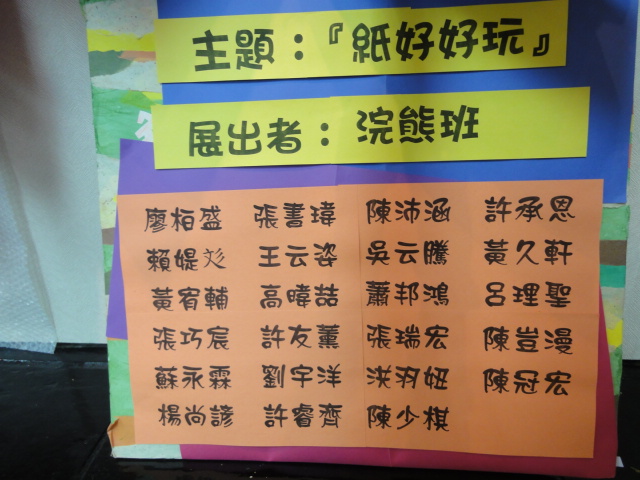 主題：『紙好好玩』
展出者：浣熊班
廖栢盛 張書瑋 陳沛涵 許承恩
賴媞彣 王云姿 吳云騰 黃久軒
黃宥輔 高暐喆 蕭邦鴻 呂理聖
張巧宸 許友薰 張瑞宏 陳豈漫
蘇永霖 劉宇洋 洪羽妞 陳冠宏
楊尚諺 許睿齊 陳少棋